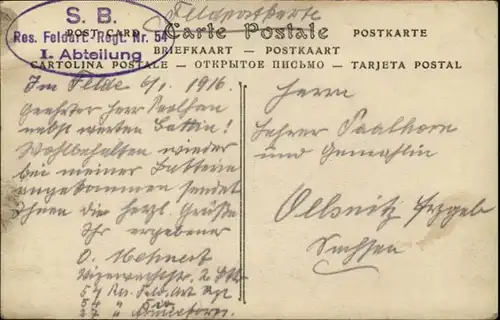 S. B.
Res. Feldart. Regt. Nr. 54
I. Abteilung
Feldpostkarte
POST CARD Carte Postale POSTKARTE
BRIEFKAART — POSTKAART
CARTOLINA POSTALE — ОТКРЫТОЕ ПИСЬМО — TARJETA POSTAL
Im Felde 6/1. 1916.
Geehrter Herr
nebst werten Gattin!
Wohlbehalten wieder
bei meiner Batterie
angekommen sendet
Ihnen die herzl. Grüße
Ihr ergebener
O. Mehnert
2
54 Res. Feld. Art. Rgt
54 " "
27 "
Herrn
Lehrer Paalhorn
und Gemahlin
Oelsnitz Erzgeb
Sachsen